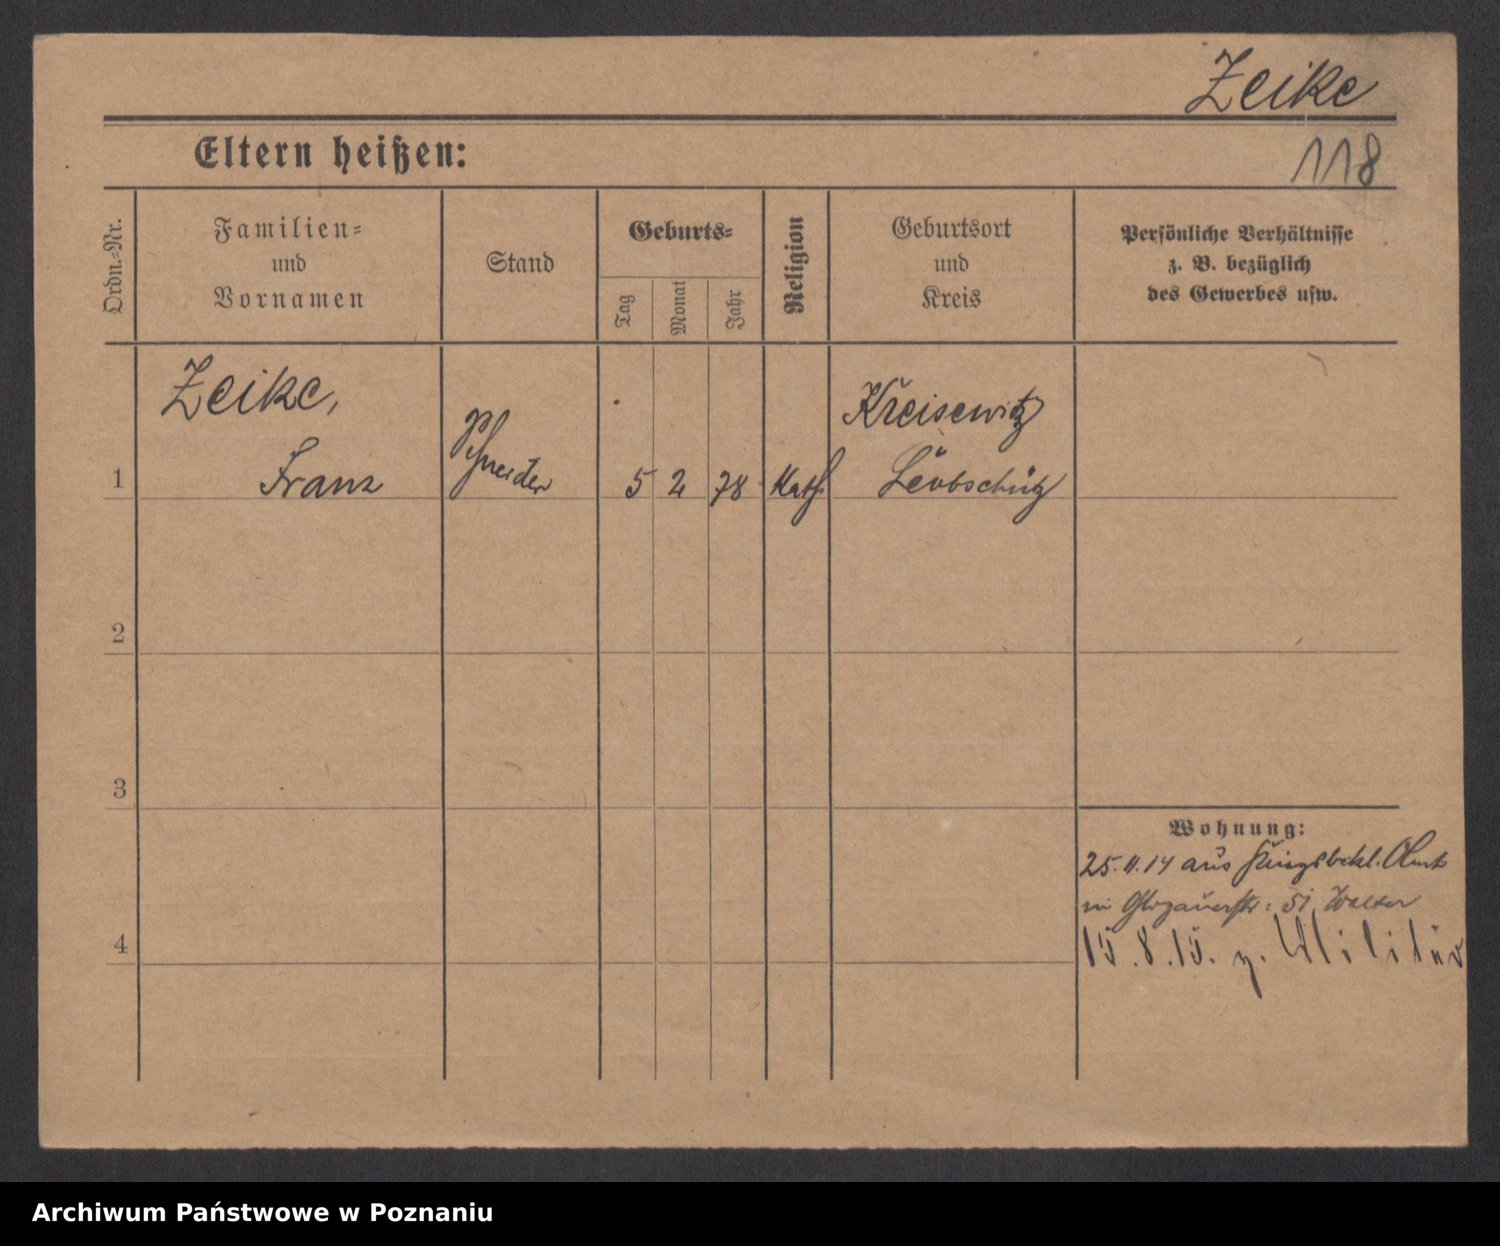 Zeike
118
Eltern heißen:
Ordn.-Nr.
Familien-
und
Vornamen
Stand
Geburts-
Tag
Monat
Jahr
Religion
Geburtsort
und
Kreis
Persönliche Verhältnisse
z. B. bezüglich
des Gewerbes usw.
Zeike,
Franz
Schneider
5 2 78
Kath
Kreisewitz
Leobschütz
1
2
3
4
Wohnung:
25.11.14 aus
in Glogauerstr: 51
15.8.15. z. Militär
Archiwum Państwowe w Poznaniu